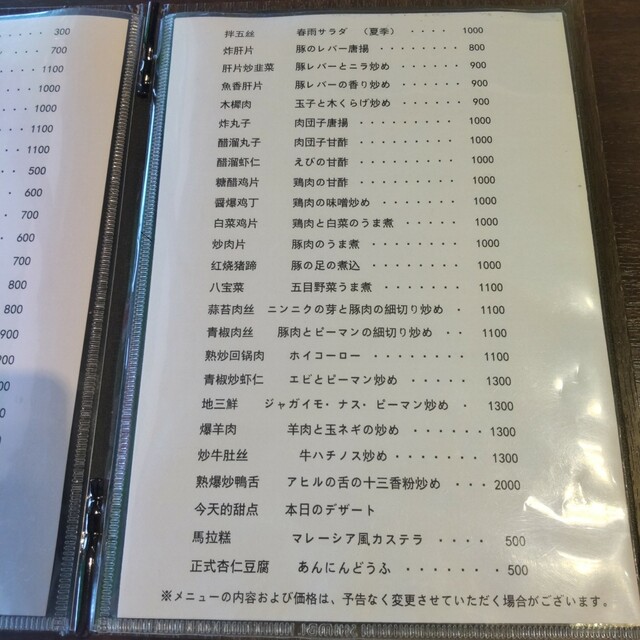 300
700
1100
1000
1000
1100
1100
500
600
700
600
700
800
800
900
900
900
900
拌五丝 春雨サラダ （夏季） ････ 1000
炸肝片 豚のレバー唐揚 ････････ 800
肝片炒韭菜 豚レバーとニラ炒め ･････ 900
魚香肝片 豚レバーの香り炒め ････ 900
木樨肉 玉子と木くらげ炒め ････ 900
炸丸子 肉団子唐揚 ･････････ 1000
醋溜丸子 肉団子甘酢 ･････････ 1000
醋溜虾仁 えびの甘酢 ･････････ 1000
糖醋鸡片 鶏肉の甘酢 ･････････ 1000
醤爆鸡丁 鶏肉の味噌炒め ･･･････ 1000
白菜鸡片 鶏肉と白菜のうま煮 ･････ 1000
炒肉片 豚肉のうま煮 ････････ 1000
红烧猪蹄 豚の足の煮込 ････････ 1000
八宝菜 五目野菜うま煮 ･･･････ 1100
蒜苔肉丝 ニンニクの芽と豚肉の細切り炒め ･ 1100
青椒肉丝 豚肉とピーマンの細切り炒め ･･ 1100
熟炒回锅肉 ホイコーロー ････････ 1100
青椒炒虾仁 エビとピーマン炒め ･････ 1300
地三鮮 ジャガイモ・ナス・ピーマン炒め ･ 1300
爆羊肉 羊肉と玉ネギの炒め ･･････1300
炒牛肚丝 牛ハチノス炒め･･･････1300
熟爆炒鴨舌 アヒルの舌の十三香粉炒め ･･･2000
今天的甜点 本日のデザート
馬拉糕 マレーシア風カステラ ････ 500
正式杏仁豆腐 あんにんどうふ ･･･････500
※メニューの内容および価格は、予告なく変更させていただく場合がございます。